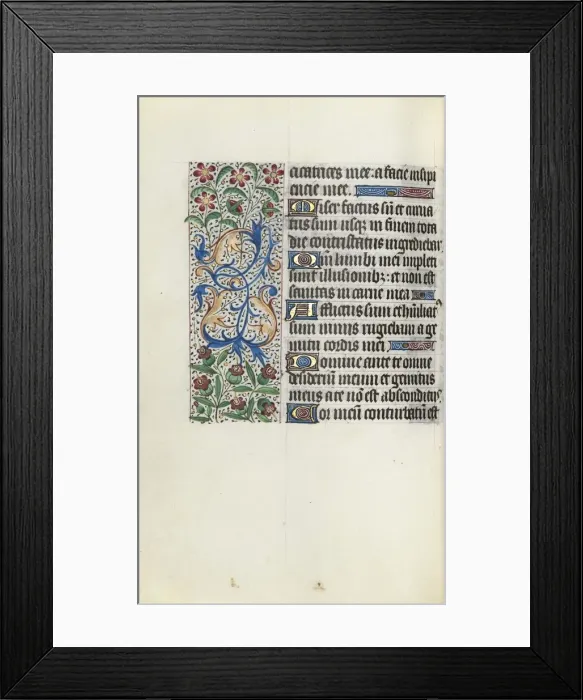 cicatrices mee: a facie insipi
encie mee.
Miser factus sū et curua
tus sum usq; in finem tota
die cōtristatus ingrediebar
Qm̄ lumbi mei impleti
sunt illusionib3: et non est
sanitas in carne mea
Afflictus sum et hūiliat9
sum nimis rugiebam a ge
mitu cordis mei
Domine ante te omne
desideriū meum et gemitus
meus a te nō est absconditus
Cor meū conturbatū est